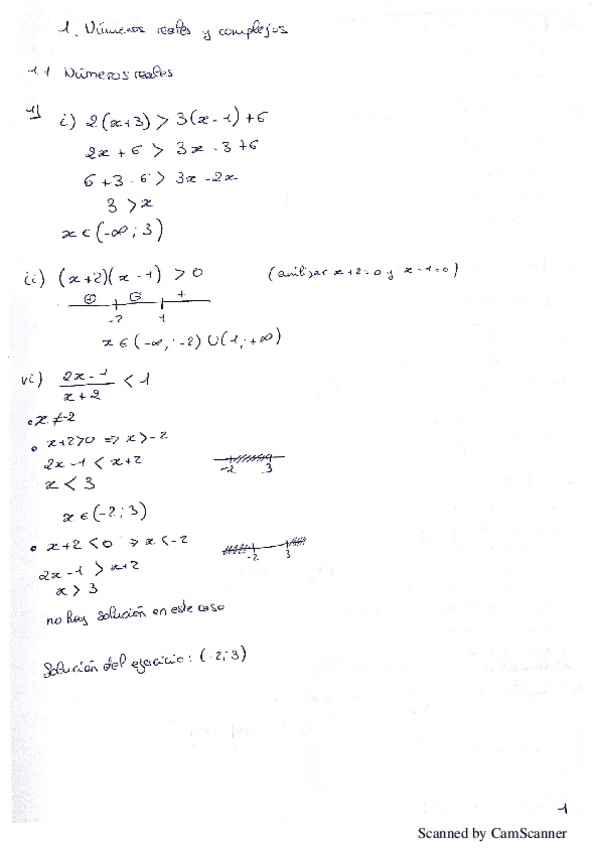 1. Números reales y complejos
1.1 Números reales
1) i) 2(x+3) > 3(x-1)+6
2x + 6 > 3x - 3 + 6
6 + 3 - 6 > 3x - 2x
3 > x
x ∈ (-∞; 3)
ii) (x+2)(x-1) > 0 (analizar x+2=0 y x-1=0)
⊕ ⊖ +
-2 1
x ∈ (-∞; -2) ∪ (1; +∞)
vi) (2x-1)/(x+2) < 1
• x ≠ -2
• x+2>0 ⇒ x>-2
2x-1 < x+2
-2 3
x < 3
x ∈ (-2; 3)
• x+2 <0 ⇒ x<-2
-2 3
2x-1 > x+2
x > 3
no hay solución en este caso
Solución del ejercicio: (-2; 3)
1
Scanned by CamScanner